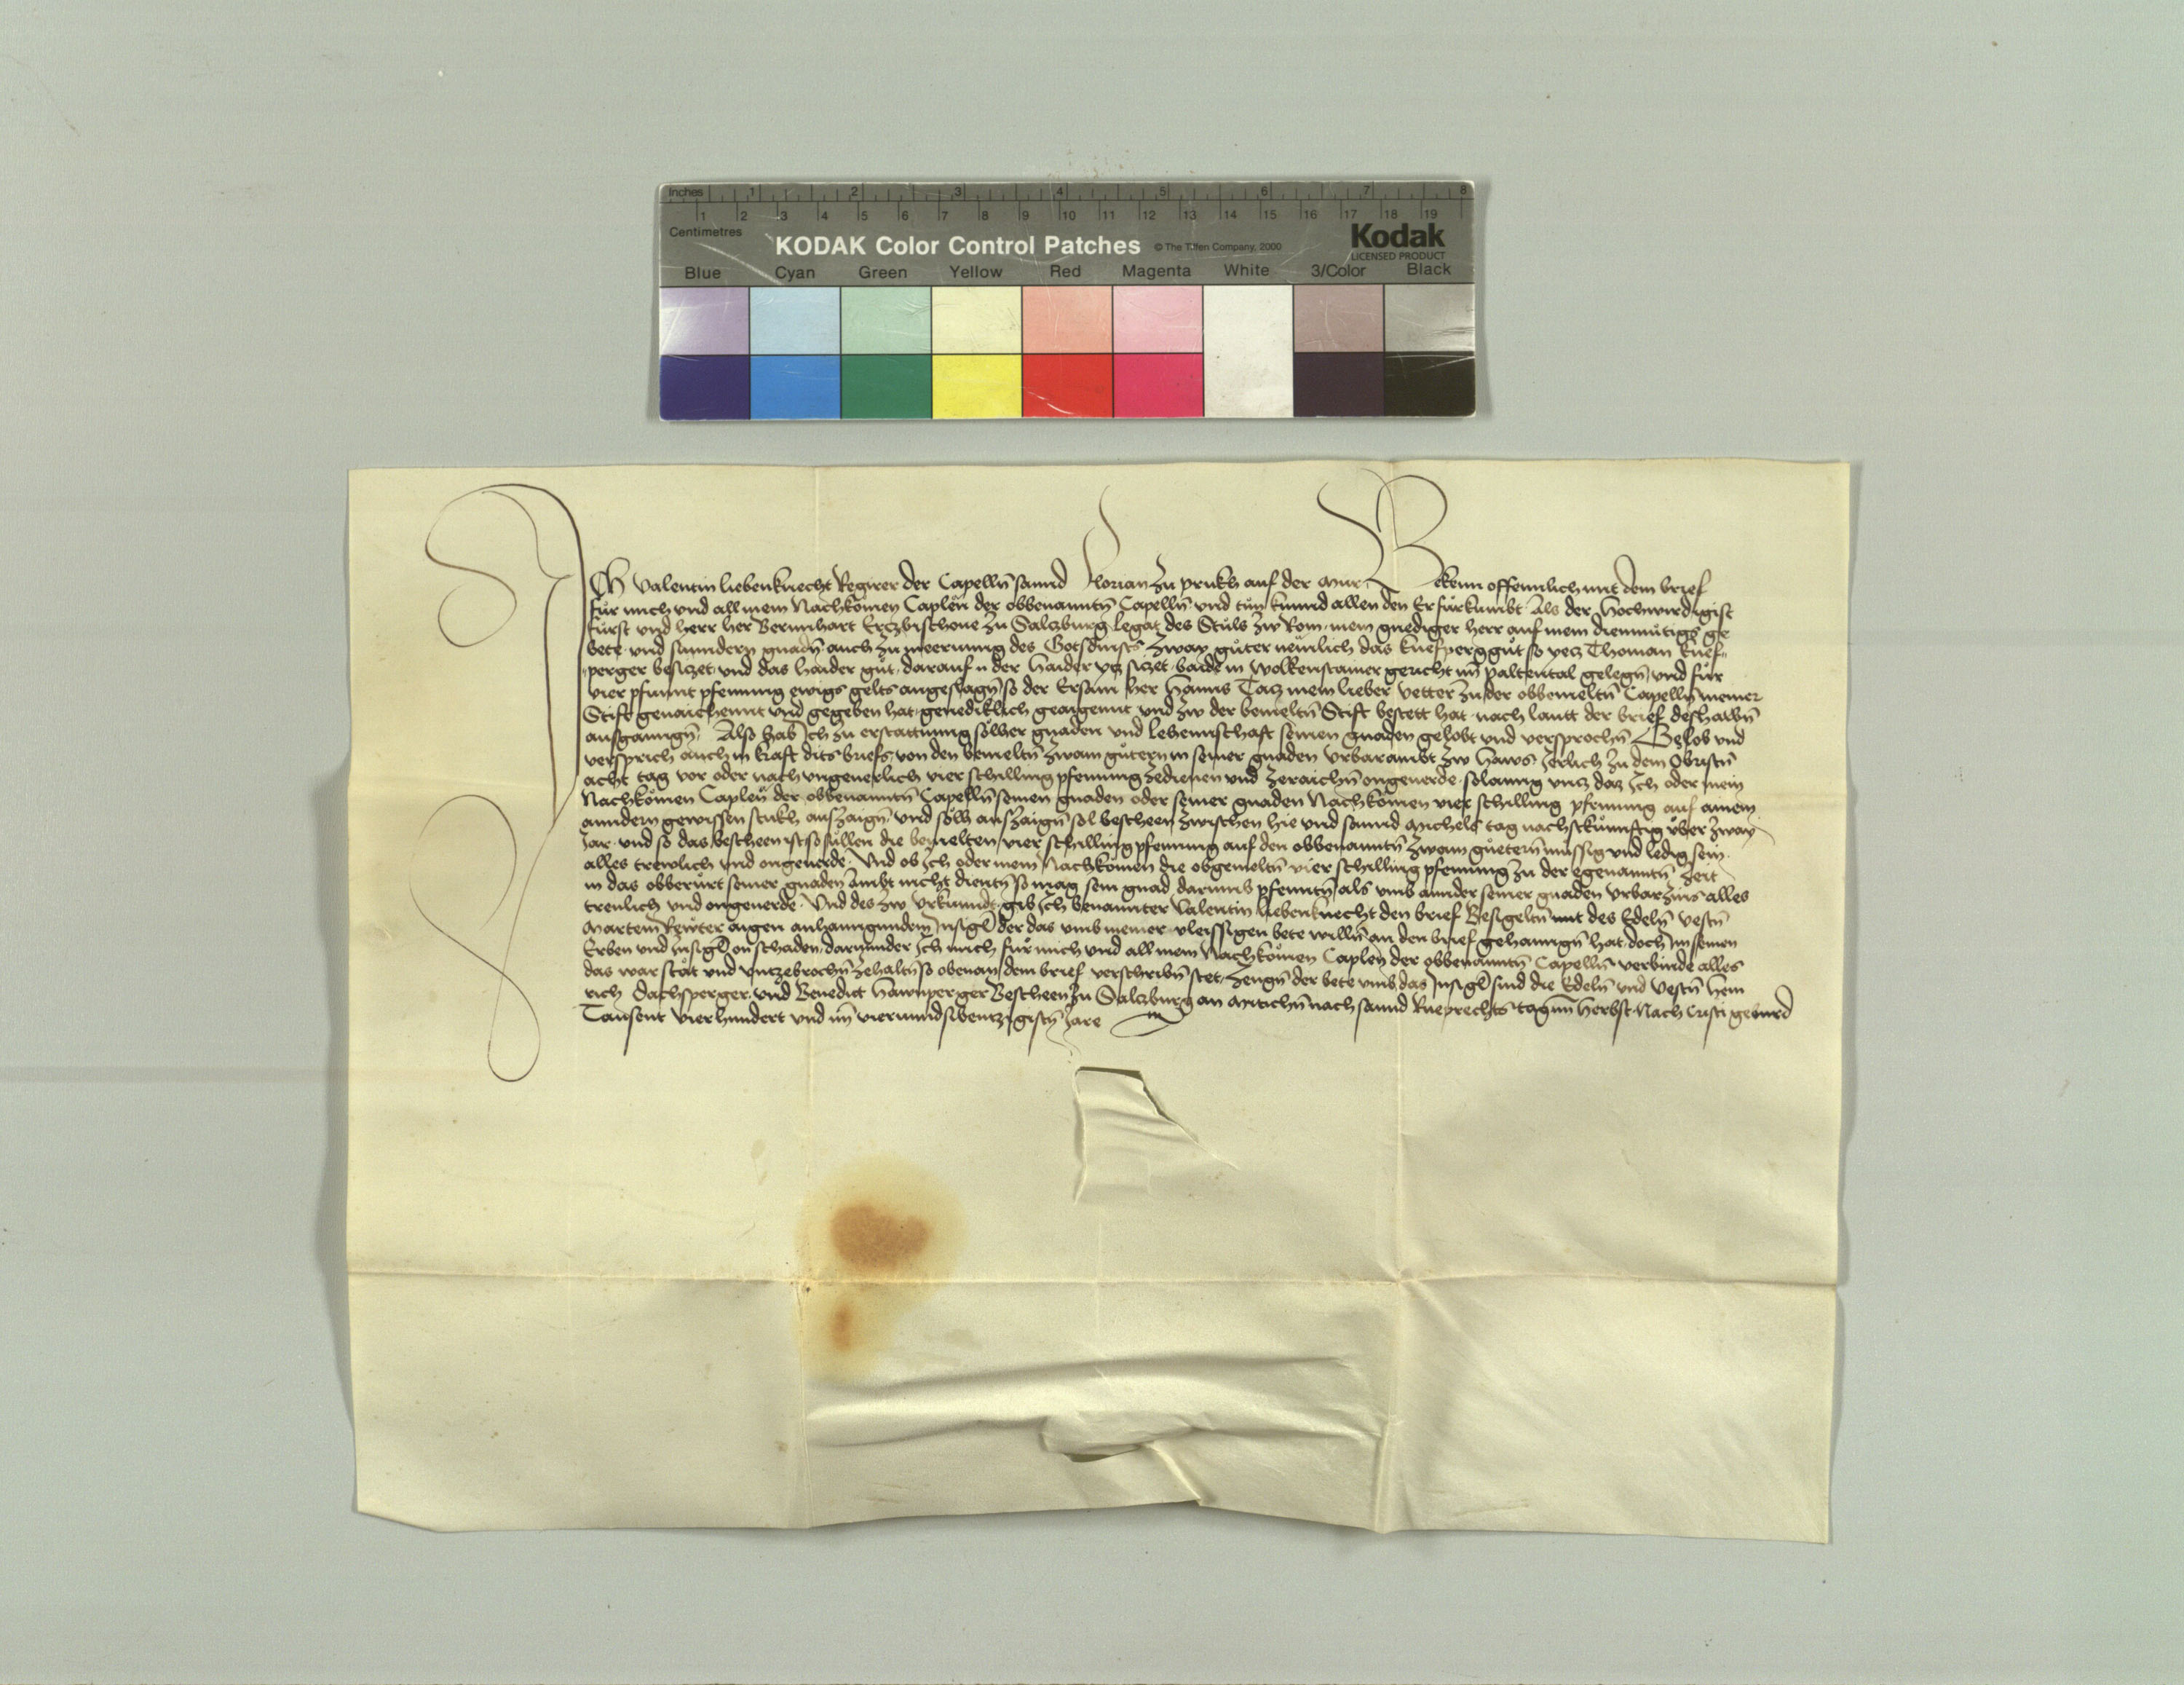 Inches 1 2 3 4 5 6 7 8
1 2 3 4 5 6 7 8 9 10 11 12 13 14 15 16 17 18 19
Centimetres
KODAK Color Control Patches © The Tiffen Company, 2000 Kodak
LICENSED PRODUCT
Blue Cyan Green Yellow Red Magenta White 3/Color Black
Ich Valentin liebenknecht Regirer der Capelln̄ sannd Florian zu prukh auf der Muer Bekenn offennlich mit dem brief
für mich vnd all mein Nachkomen Caplen̄ der obbenanntn̄ Capelln̄ vnd tůn kunnd allen den Er fürkumbt Als der Hochwirdigist
fürst vnd herr her Bernnhart Erczbischoue zu Salczburg legat des Stůls zw Rom mein gnediger herr auf mein diemmůtigs ge
bete vnd sunndern gnadn̄ auch zu meerunng des Gotsdinsts zway gůter nemlich das knefperggůt so yecz Thoman knef
perger besiczet vnd das haider gůt darauf n der haider ycz siczet baide in Wolkenstainer gericht im̄ paltental gelegn̄ vnd für
vier pfunnt pfenning ewigs gelts angeslagn̄ so der Ersam her Hanns Tacz mein lieber vetter zu der obbemeltn̄ Capelln̄ meiner
Stift geuaichennt vnd gegeben hat genediklich geaigennt vnd zw der bemeltn̄ Stift bestett hat nach lautt der brief deshalbn̄
ausganngn̄ Also hab Ich zu erstattunng solher gnaden vnd lehennschaft seinen gnaden gelobt vnd versprochn̄ Gelob vnd
versprich auch in kraft dits briefs von den bemeltn̄ zwain gůtern in seiner gnaden vrbarambt zw Haws Jerlich zu dem Obristn̄
acht tag vor oder nach vngeuerlich vier schilling pfenning zedienen vnd zeraichn̄ ongeuerde solanng vncz daz Ich oder mein
Nachkomen Caplen̄ der obbenanntn̄ Capelln̄ seinen gnaden oder seiner gnaden Nachkomen vier schilling pfenning auf ainem
anndern gewissen stukh auszaign̄ vnd solh auszaign̄ sol bescheen zwischen hie vnd sannd Michels tag nachstkunnftig vber zway
Jar vnd so das bescheen ist so sullen die bemelten vier schilling pfenning auf den obbenanntn̄ zwain gůetern̄ mussig vnd ledig sein
alles trewlich vnd ongeuerde Vnd ob Ich oder mein Nachkomen die obgemeltn̄ vier schilling pfenning zu der egenanntn̄ zeit
in das obberurt seiner gnaden ambt nicht dientn̄ so mag sein gnad darumb pfenntn̄ als vmb annder seiner gnaden vrbarzins alles
treulich vnd ongeuerde Vnd des zw vrkunndt gib Ich benannter Valentin liebenknecht den brief Besigeltn̄ mit des Edeln̄ vestn̄
Martein Rewter aigen anhanngundem Insigl der das vmb meiner vleissigen bete willn̄ an den brief gehanngn̄ hat doch im seinen
Erben vnd Insigl on schaden darunnder Ich mich für mich vnd all mein Nachkomen Caplen der obbenanntn̄ Capelln̄ verbinde alles
das war stät vnd vntzebrochn̄ zehaltn̄ so oben an dem brief verschribn̄ stet zeugn̄ der bete vmb das Insigl sind die Edeln̄ vnd vestn̄ Hein
rich Dachsperger vnd Benedict Hawnperger Bescheen zu Salczburg an Mitichn̄ nach sannd Rueprechts tag im̄ Herbst Nach Cristi geburd
Tausent vierhundert vnd im̄ vierundsibentzigistn̄ Jare